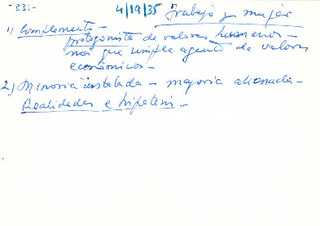 -331- 4/19/35 Trabajo y mujer
1) Complemento -
protagonista de valores humanos -
más que simple agente de valores
económicos -
2) Minoria instalada - mayoria alienada -
Realidades e hipótesis -